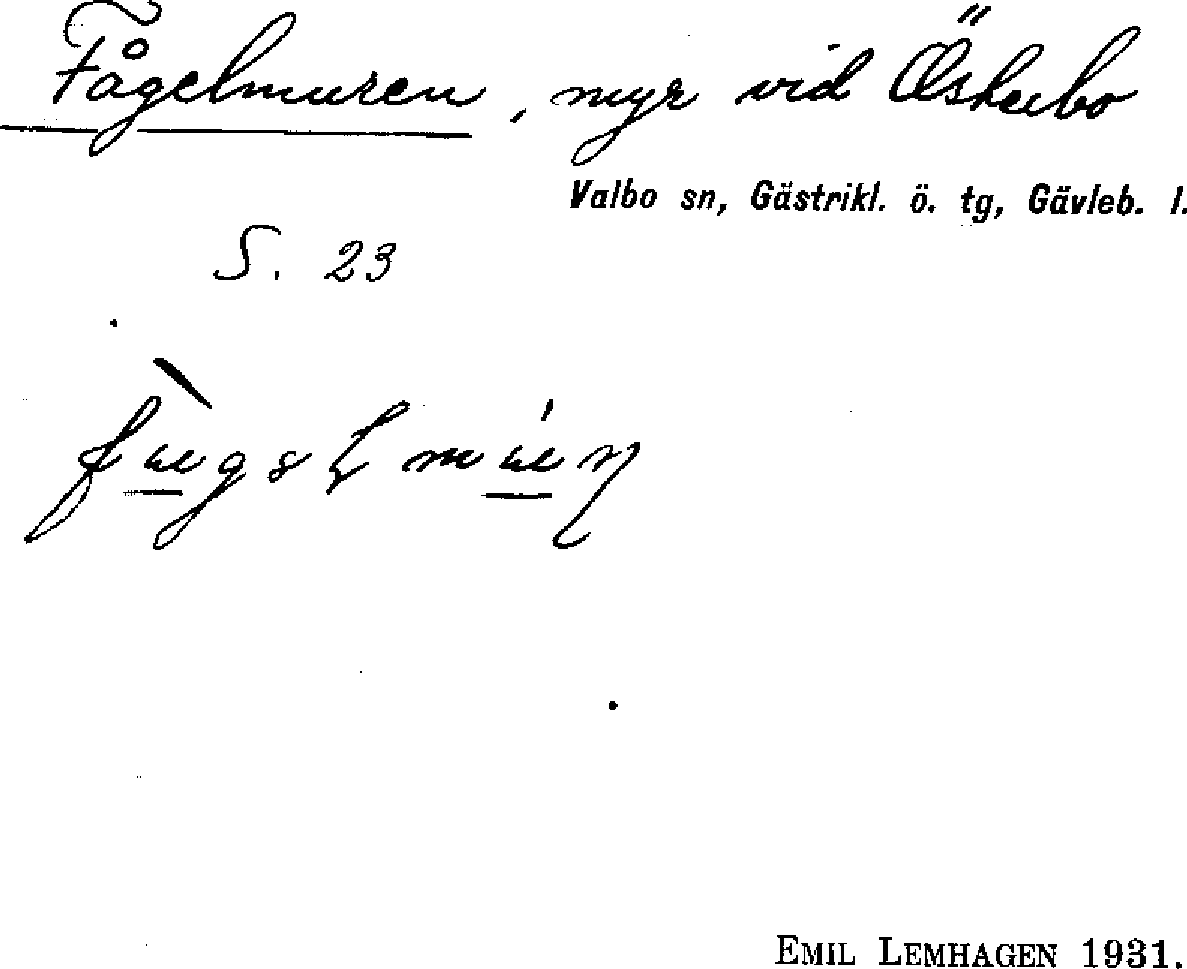 Fågelmuren, myr vid
Valbo sn, Gästrikl. ö. tg, Gävleb. l.
S. 23
EMIL LEMHAGEN 1931.